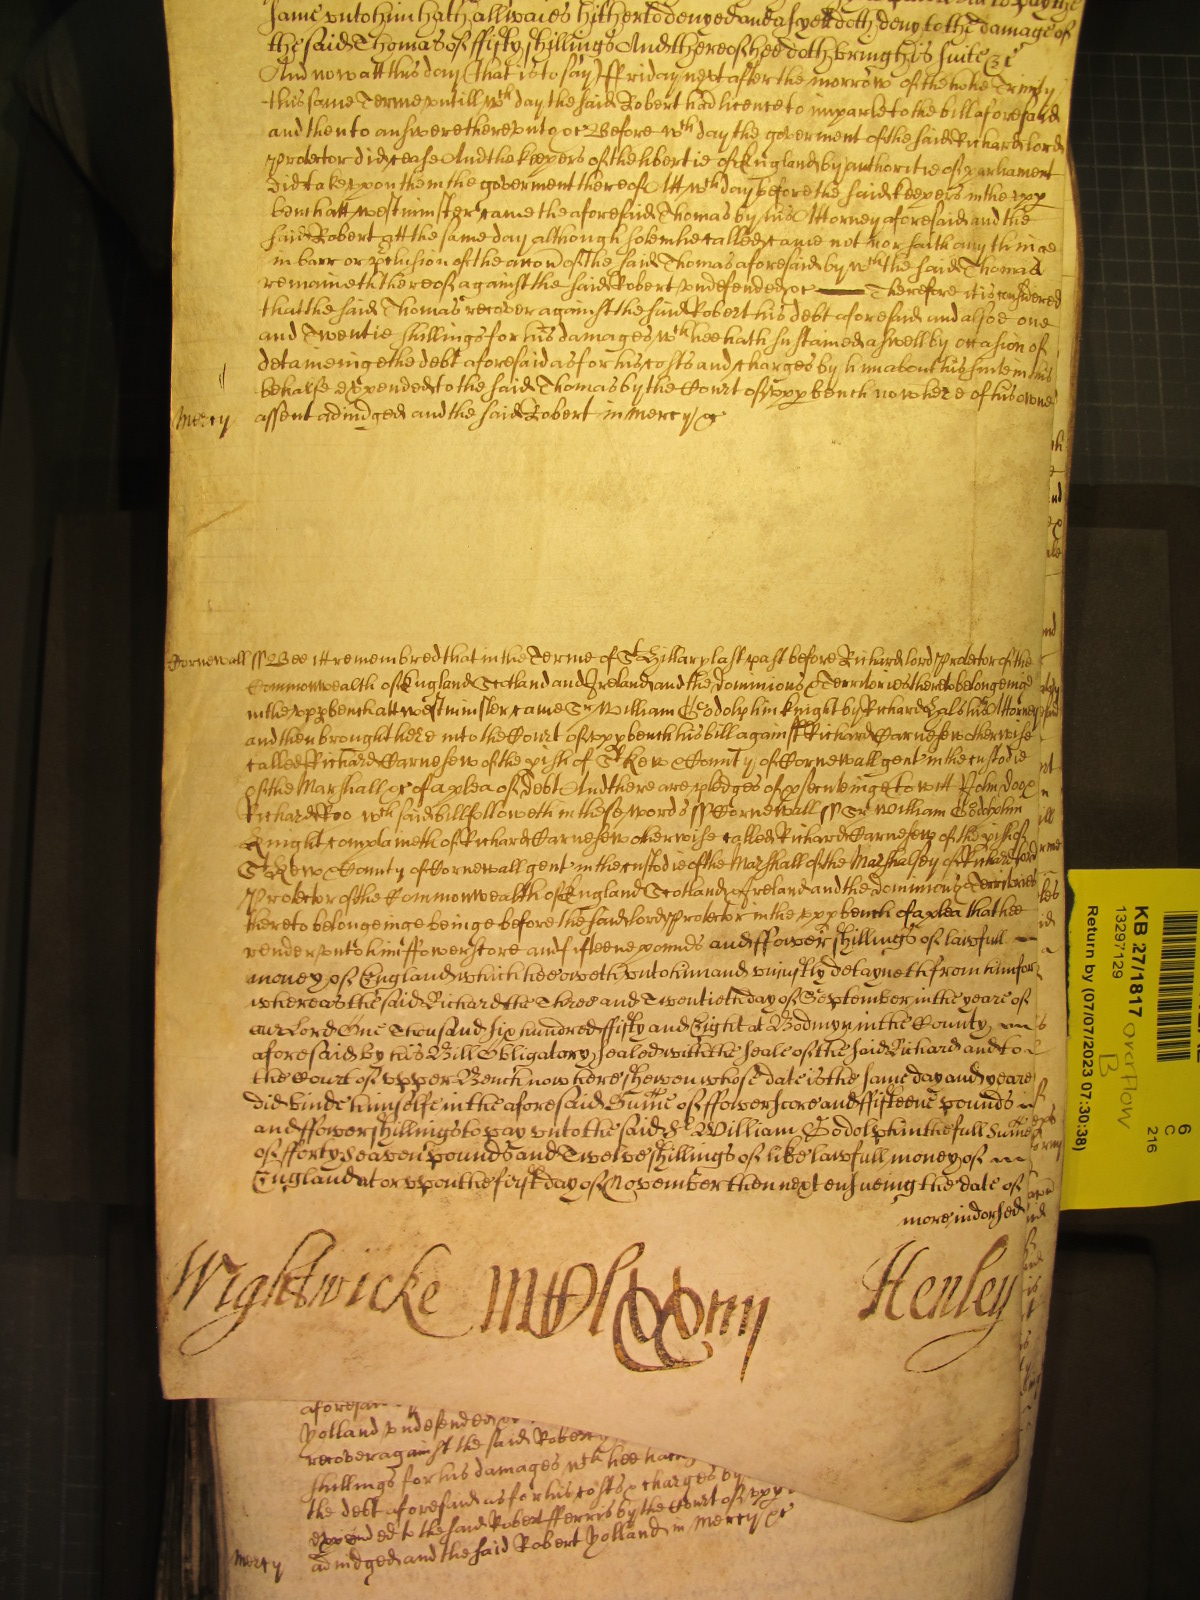 same unto him hath allwaies hitherto denyed and as yett doth deny to the damage of
the said Thomas of ffifty shillings And thereof hee doth bring his suite &c
And now att this day (that is to say) ffriday next after the morrow of the holie Trinity
this same Terme untill wch day the said Robert had licence to imparle to the bill aforesaid
and then to answere thereunto &c Before wch day the goverment of the said Richard lord
Protector did cease And the keepers of the libertie of England by authoritie of parliament
did take upon them the goverment thereof Att wch day before the said keepers in the upp
bench att westminster came the aforesaid Thomas by his Attorney aforesaid and the
said Robert att the same day although solemlie called came not nor saith any thinge
in barr or preclusion of the accon of the said Thomas aforesaid by wch the said Thomas
remaineth thereof against the said Robert undefended &c Therefore it is considered
that the said Thomas recover against the said Robert his debt aforesaid and alsoe one
and Twentie shillings for his damages wch hee hath sustained aswell by occasion of
detaineinge the debt aforesaid as for his costs and charges by him about his suite in this
behalfe expended to the said Thomas by the Court of upp bench now here of his owne
Mercy assent adiudged and the said Robert in mercy &c
Cornewall ss Bee itt remembred that in the Terme of St Hillary last past before Richard lord Protector of the
Commonwealth of England Scotland and Ireland and the dominions & Territories thereto belongeinge
in the upp bench att westminster came Sr William Godolphin knight by Richard Hals his Attorney
and then brought here into the Court of upp bench his bill against Richard Carnesew otherwise
called Richard Carnesew of the pish of St Kew County of Cornewall gent in the custodie
of the Marshall &c of a plea of debt And there are pledges of prosecuteinge to witt John Doo
Richard Roo wch said bill followeth in these words ss Cornewall ss Sr William Godolphin
knight complaineth of Richard Carnesew otherwise called Richard Carnesew of the pish of
St Kew County of Cornewall gent in the custodie of the Marshall of the Marshalsey of Richard lord
Protector of the Commonwealth of England Scotland & Ireland and the dominions & Territories
thereto belongeinge beinge before the said lord Protector in the upp bench of a plea that hee
render unto him ffower store and fifteene pounds and ffower shillings of lawfull
money of England which hee oweth unto him and uniustly detayneth from him for
whereas the said Richard the Three and Twentieth day of September in the yeare of
our Lord One Tousand six hundred ffifty and Eight at Bodmyn in the County
aforesaid by his Bill Obligatory sealed with the seale of the said Richard and to
the Court of upper Bench now here shewen whose date is the same day and yeare
did binde himselfe in the aforesaid Sume of ffowerscore and ffifteene pounds
and ffower shillings to pay unto the said Sr William Godolphin the full Sume
of fforty Seaven pounds and Twelve shillings of like lawfull money of
England at or upon the first day of November then next ensueing the date of
more indorsed
Wightwicke Henley
aforesaid
Yolland undefended &c
recover against the said Robert
shillings for his damages wch hee hath
the debt aforesaid as for his costs & charges by
expended to the said Robert fferris by the Court of upp
Mercy adiudged and the said Robert Yolland in mercy &c
KB 27/1817
13297129
Return by (07/07/2023 07:30:38)
overflow
B
6
C
216